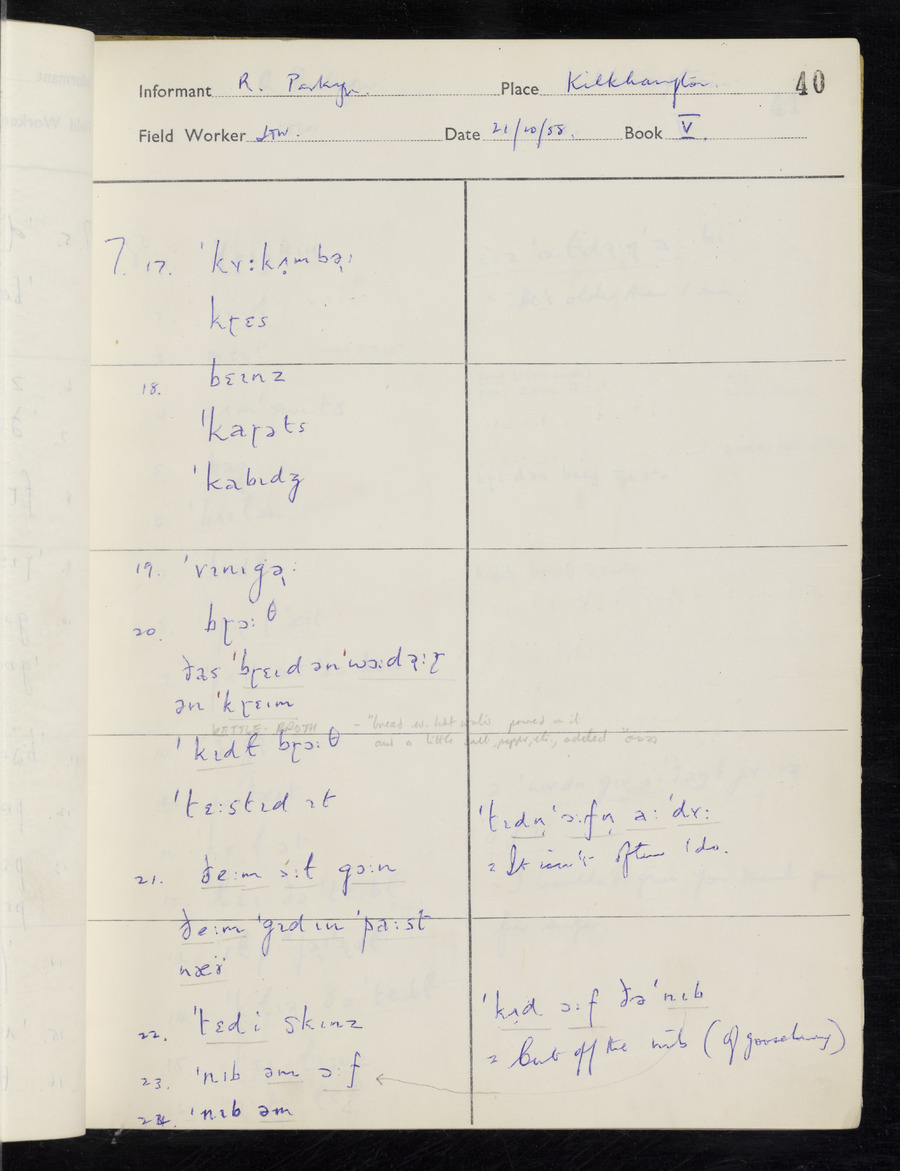 Informant R. Parkyn. Place Kilkhampton. 40
Field Worker Date 21/10/55. Book V.
7. 17. ˈkʏːkʌ̣mbəɻː
kɽɛs
18. bɛɪnz
ˈkaɽəts
ˈkabɪdʒ
19. ˈvɪnɪgəɻː
20. bɽɔːθ
ðas ˈbɽɛɪd ən ˈwɔːdəɻːz
ən ˈkɽɛɪm
KETTLE-BROTH – "bread w. hot water poured on it
and a little salt, pepper, etc., added"
ˈkɪdɫ bɽɔːθ
ˈtɛːstɪd ɪt
ˈtɪdn̩ ˈɔːfn̩ aː ˈdʏː
= It isn't often I do.
21. ðeːm ɔːɫ gɔːn
ðeːm ˈgɪd ɪn ˈpaːst
næɪ̈
22. ˈtɛdi skɪnz
ˈkʌ̣d ɔːf ðə ˈnɪb
= Cut off the nib (of gooseberry)
23. ˈnɪb əm ɔːf
24. ˈnɪb əm